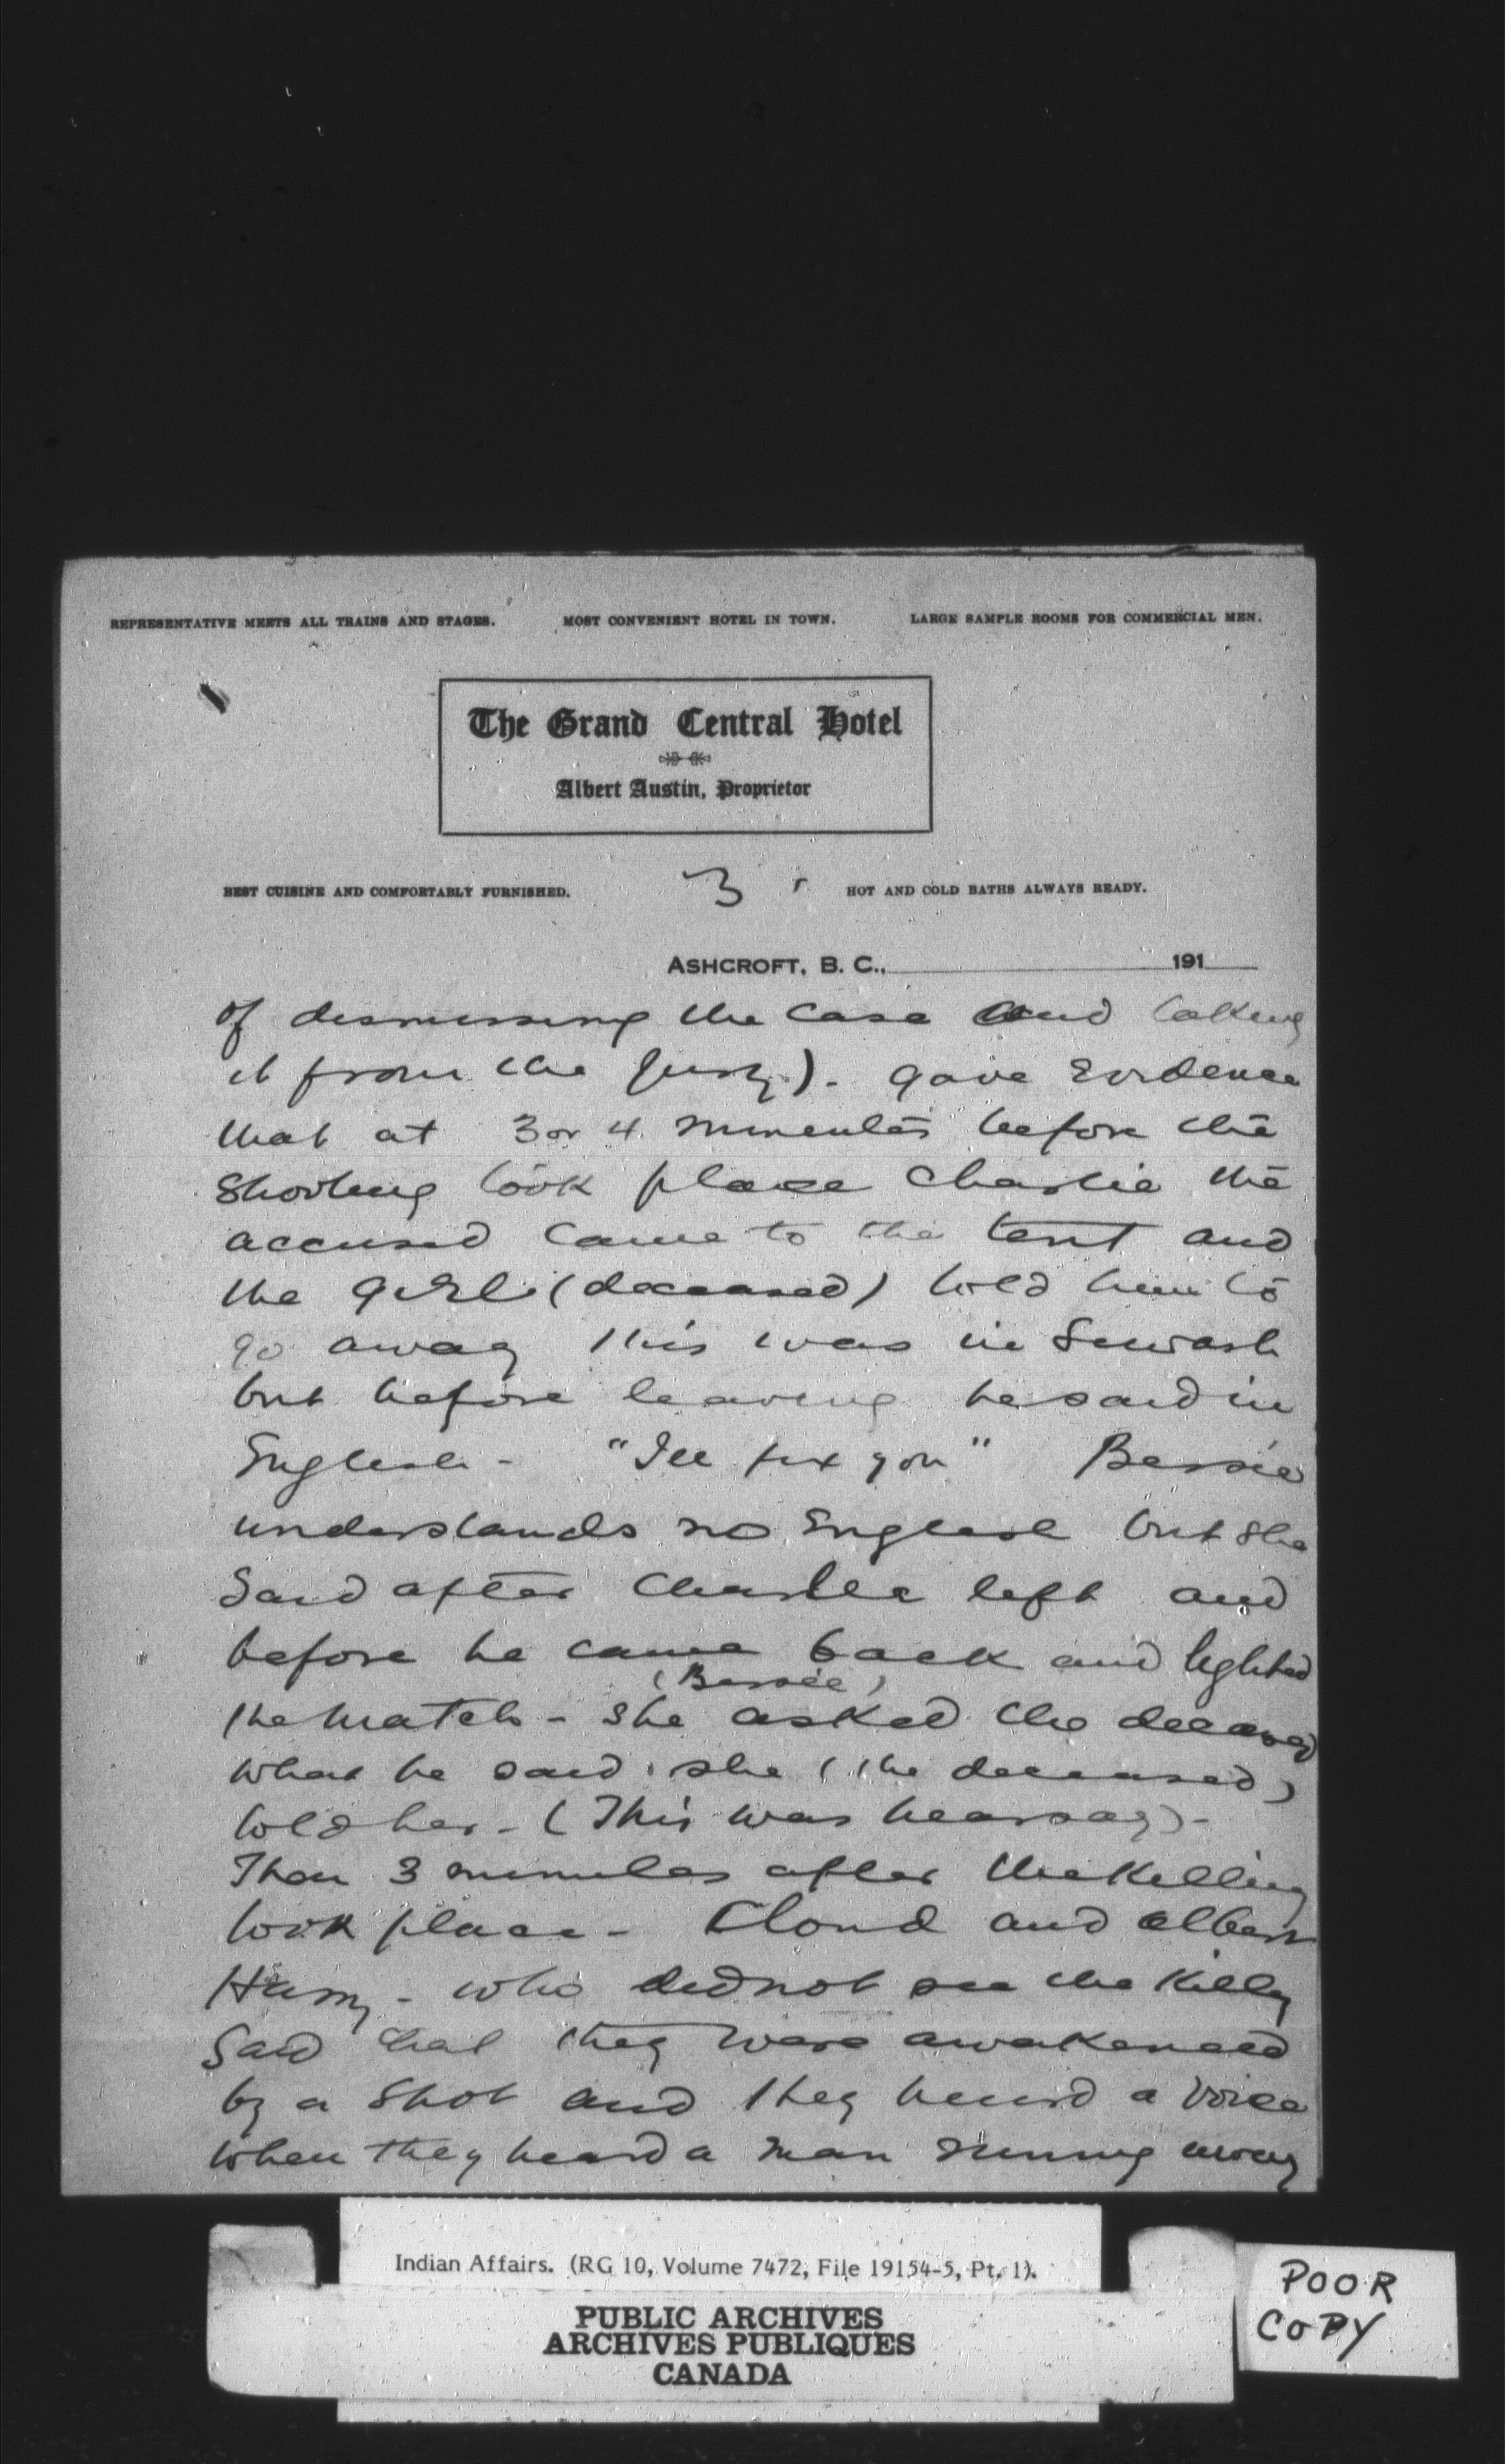 REPRESENTATIVE MEETS ALL TRAINS AND STAGES. MOST CONVENIENT HOTEL IN TOWN. LARGE SAMPLE ROOMS FOR COMMERCIAL MEN.
The Grand Central Hotel
Albert Austin, Proprietor
BEST CUISINE AND COMFORTABLY FURNISHED. 3 HOT AND COLD BATHS ALWAYS READY.
ASHCROFT, B. C., 191
of dismissing the case and taking
it from the jury). gave Evidence
that at 3 or 4 minutes before the
shooting took place Charlie the
accused came to the tent and
the girl (deceased) told him to
go away this was in Siwash
but before leaving he said in
English - "Ill fix you" Bessie
understands no English but she
said after Charlie left and
before he came back and lighted
(Bessie)
the match - she asked the deceased
what he said. she (the deceased)
told her - (This was hearsay) -
Then 3 minutes after the killing
took place - Cloud and Albert
Harry - who did not see the killing
said that they were awakened
by a shot and they heard a voice
when they heard a man running away
Indian Affairs. (RG 10, Volume 7472, File 19154-5, Pt. 1).
PUBLIC ARCHIVES
ARCHIVES PUBLIQUES
CANADA
POOR
COPY